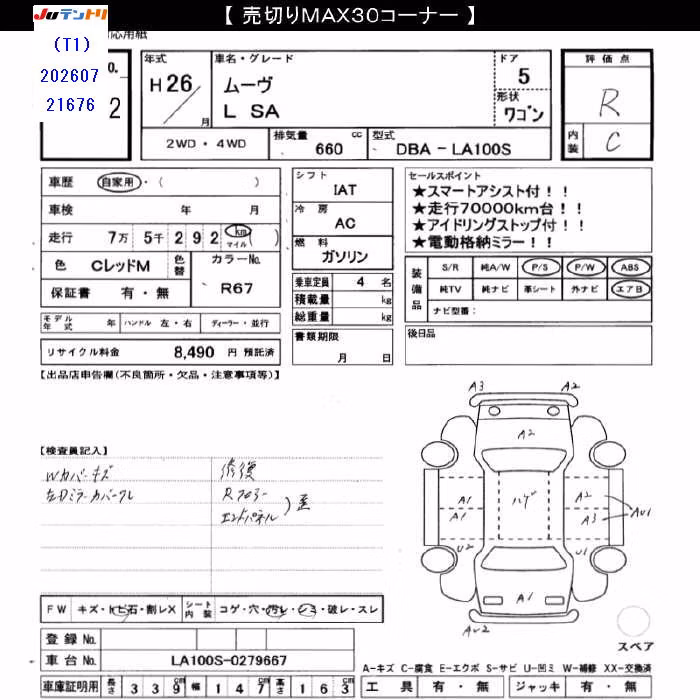 【 売切りMAX30コーナー 】
JUテントリ
応用紙
(T1)
202607
21676
o.
2
年式
H 26
月
車名・グレード
ムーヴ
L SA
ドア
5
形状
ワゴン
評価点
R
内装
C
2WD・4WD
排気量
660
cc
型式
DBA - LA100S
車歴
自家用・( )
車検
年
月
走行
7万
5千
2
9
2
km
マイル
( )
色
CレッドM
色替
カラーNo.
R67
保証書
有・無
シフト
IAT
冷房
AC
燃料
ガソリン
乗車定員
4
名
積載量
kg
総重量
kg
セールスポイント
★スマートアシスト付！！
★走行70000km台！！
★アイドリングストップ付！！
★電動格納ミラー！！
装備品
S/R
純A/W
P/S
P/W
ABS
純TV
純ナビ
革シート
外ナビ
エアB
ナビ型番：
モデル年式
年
ハンドル
左・右
ディーラー・並行
リサイクル料金
8,490
円 預託済
書類期限
月
日
後日品
【出品店申告欄(不良箇所・欠品・注意事項等)】
【検査員記入】
Wカバーキズ
左Dミラーカバークレ
修復
Rフロアー
エンドパネル
) 歪
A3
A2
A2
A1
A1
ハゲ
A2
A3
AU1
U2
U1
A1
AU2
スペア
FW
キズ・トビ石・割レX
シート内装
コゲ・穴・汚レ・シミ・破レ・スレ
登録No.
車台No.
LA100S-0279667
A-キズ C-腐食 E-エクボ S-サビ U-凹ミ W-補修 XX-交換済
車庫証明用
長さ
3
3
9
cm
幅
1
4
7
cm
高さ
1
6
3
cm
工具
有・無
ジャッキ
有・無